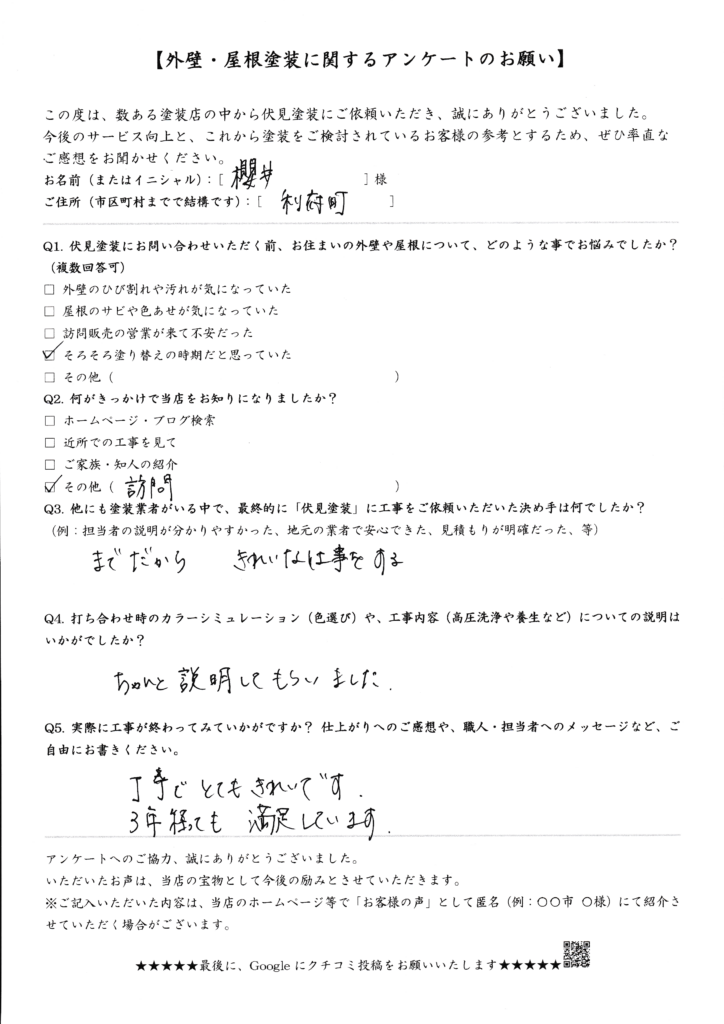 【外壁・屋根塗装に関するアンケートのお願い】
この度は、数ある塗装店の中から伏見塗装にご依頼いただき、誠にありがとうございました。
今後のサービス向上と、これから塗装をご検討されているお客様の参考とするため、ぜひ率直な
ご感想をお聞かせください。
お名前（またはイニシャル）：[ 櫻井 ] 様
ご住所（市区町村までで結構です）：[ 利府町 ]
Q1. 伏見塗装にお問い合わせいただく前、お住まいの外壁や屋根について、どのような事でお悩みでしたか？
（複数回答可）
□ 外壁のひび割れや汚れが気になっていた
□ 屋根のサビや色あせが気になっていた
□ 訪問販売の営業が来て不安だった
☑ そろそろ塗り替えの時期だと思っていた
□ その他（ ）
Q2. 何がきっかけで当店をお知りになりましたか？
□ ホームページ・ブログ検索
□ 近所での工事を見て
□ ご家族・知人の紹介
☑ その他（ 訪問 ）
Q3. 他にも塗装業者がいる中で、最終的に「伏見塗装」に工事をご依頼いただいた決め手は何でしたか？
（例：担当者の説明が分かりやすかった、地元の業者で安心できた、見積もりが明確だった、等）
までだから きれいな仕事をする
Q4. 打ち合わせ時のカラーシミュレーション（色選び）や、工事内容（高圧洗浄や養生など）についての説明は
いかがでしたか？
ちゃんと説明してもらいました.
Q5. 実際に工事が終わってみていかがですか？ 仕上がりへのご感想や、職人・担当者へのメッセージなど、ご
自由にお書きください。
丁寧で とてもきれいです.
3年経っても 満足しています.
アンケートへのご協力、誠にありがとうございました。
いただいたお声は、当店の宝物として今後の励みとさせていただきます。
※ご記入いただいた内容は、当店のホームページ等で「お客様の声」として匿名（例：〇〇市 〇様）にて紹介さ
せていただく場合がございます。
★★★★★最後に、Google にクチコミ投稿をお願いいたします★★★★★